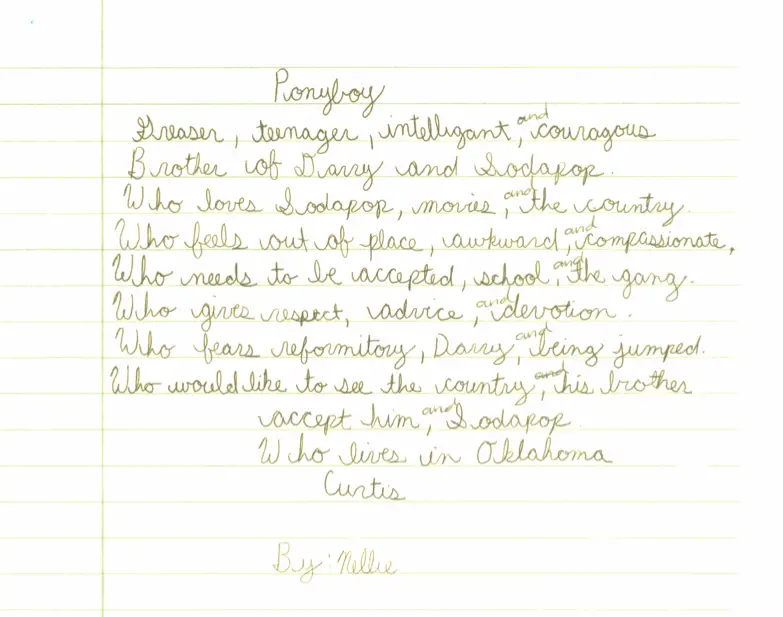 Ponyboy
Greaser, teenager, intelligant, and couragous
Brother of Darry and Sodapop.
Who loves Sodapop, movies, and the country.
Who feels out of place, awkward, and compassionate,
Who needs to be accepted, school, and the gang.
Who gives respect, advice, and devotion.
Who fears reformitory, Darry, and being jumped.
Who would like to see the country, and his brother
accept him, and Sodapop
Who lives in Oklahoma
Curtis
By: Nellie